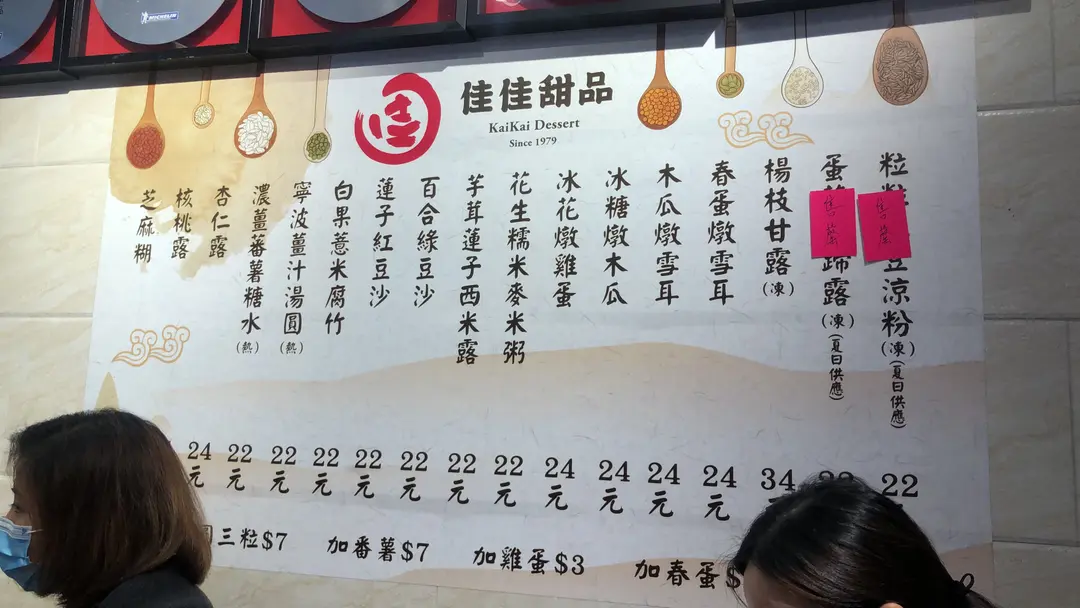 MICHELIN
佳佳甜品
KaiKai Dessert
Since 1979
佳
粒
售罄
豆涼粉(凍)(夏日供應)
22
蛋
售罄
蹄露(凍)(夏日供應)
楊枝甘露(凍)
34
春蛋燉雪耳
24元
木瓜燉雪耳
24元
冰糖燉木瓜
24元
冰花燉雞蛋
24元
花生糯米麥米粥
22元
芋茸蓮子西米露
22元
百合綠豆沙
22元
蓮子紅豆沙
22元
白果薏米腐竹
22元
寧波薑汁湯圓(熱)
22元
濃薑蕃薯糖水(熱)
22元
杏仁露
24元
核桃露
芝麻糊
三粒$7
加番薯$7
加雞蛋$3
加春蛋$